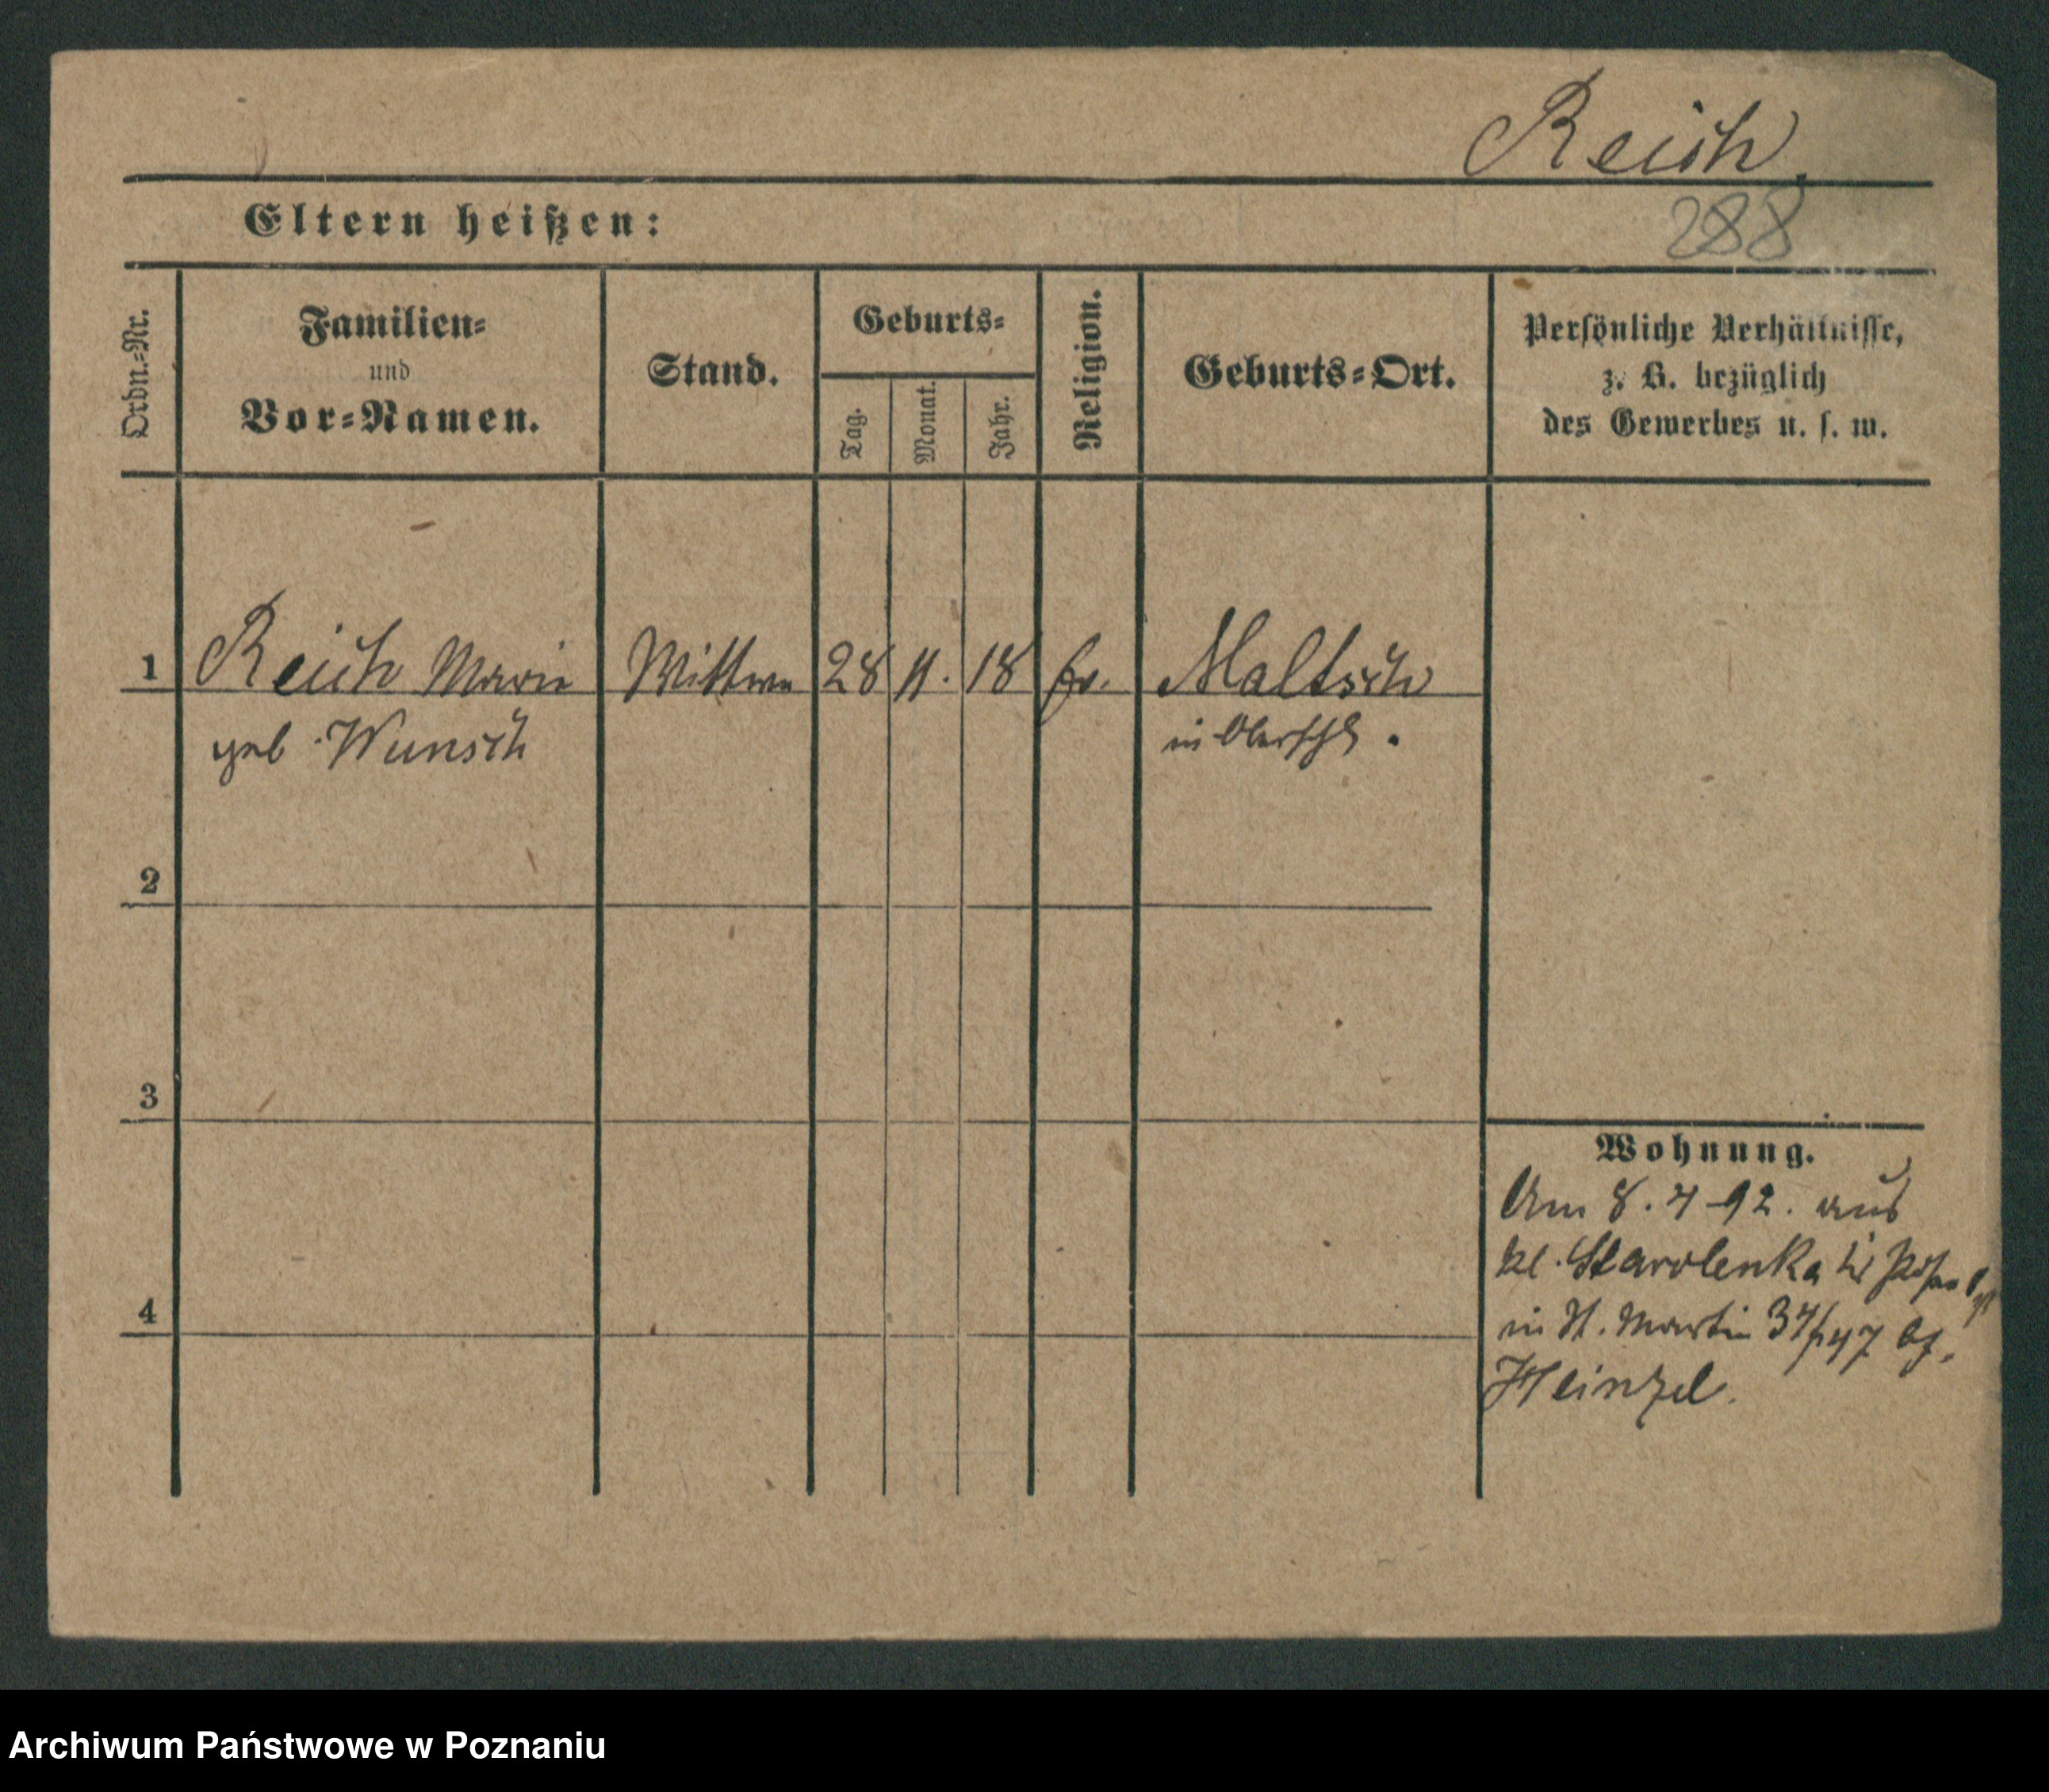 Reich
288
Eltern heißen:
Ordn.-Nr.
Familien-
und
Vor-Namen.
Stand.
Geburts-
Tag.
Monat.
Jahr.
Religion.
Geburts-Ort.
Persönliche Verhältnisse,
z. B. bezüglich
des Gewerbes u. s. w.
1 Reich Marie Wittwe 28 11. 18 ev. Maltsch
geb. Wunsch in Oberschl.
2
3
4
Wohnung.
Am 8. 4 92. aus
kl. Starolenka Posen
in St. Martin 34/
Heinzel.
Archiwum Państwowe w Poznaniu